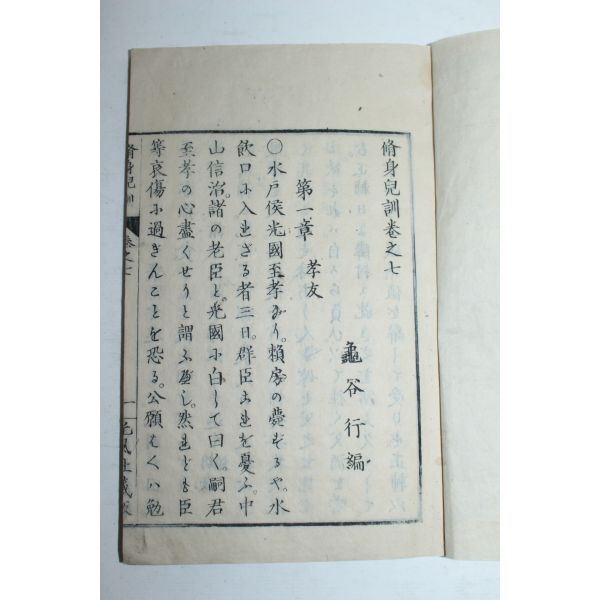 脩身兒訓卷之七
龜谷行編
第一章 孝友
〇水戸侯光國至孝なり。頼房の薨ずるや。水
飲口に入れざる者三日。群臣これを憂ふ。中
山信治。諸の老臣と。光國に白して曰く嗣君
至孝の心盡くせりと謂ふべし。然れども臣
等哀傷に過ぎんことを恐る。公願くハ勉
脩身兒訓 卷之七 一 光風社藏版